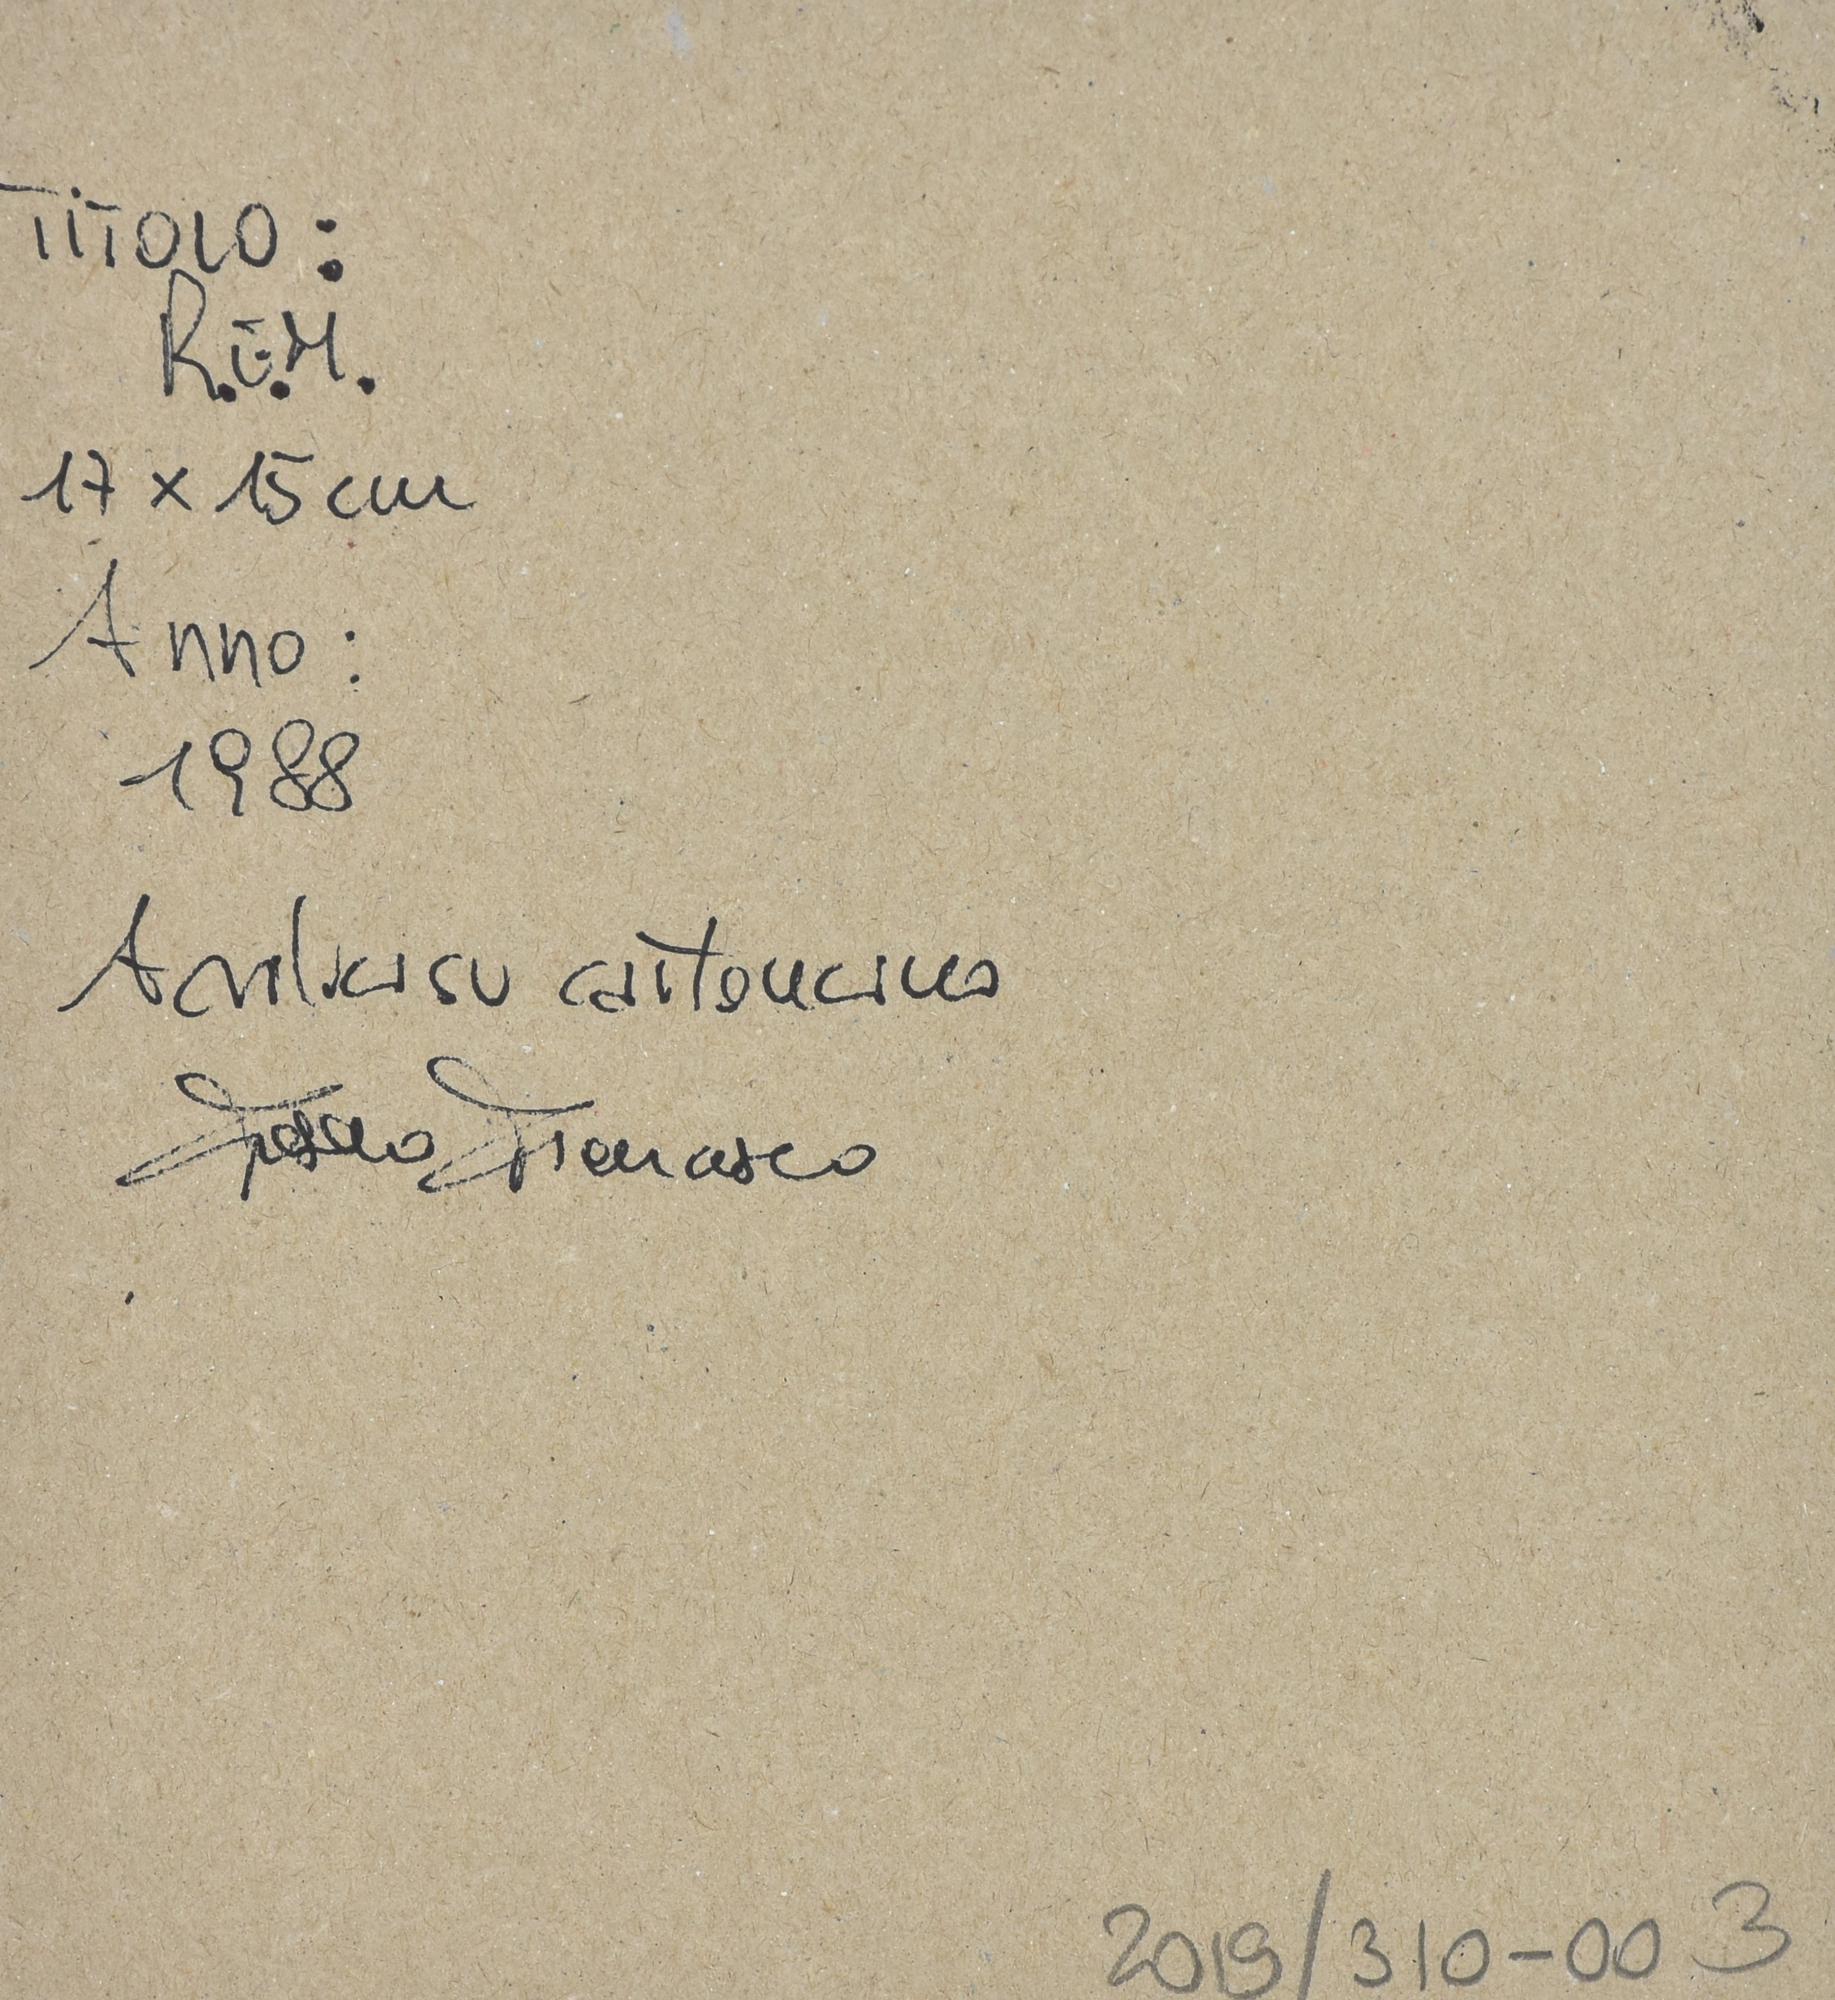 TITOLO:
R.E.M.
17 x 15 cm
Anno:
1988
Acrilici su cartoncino
2019/310-003